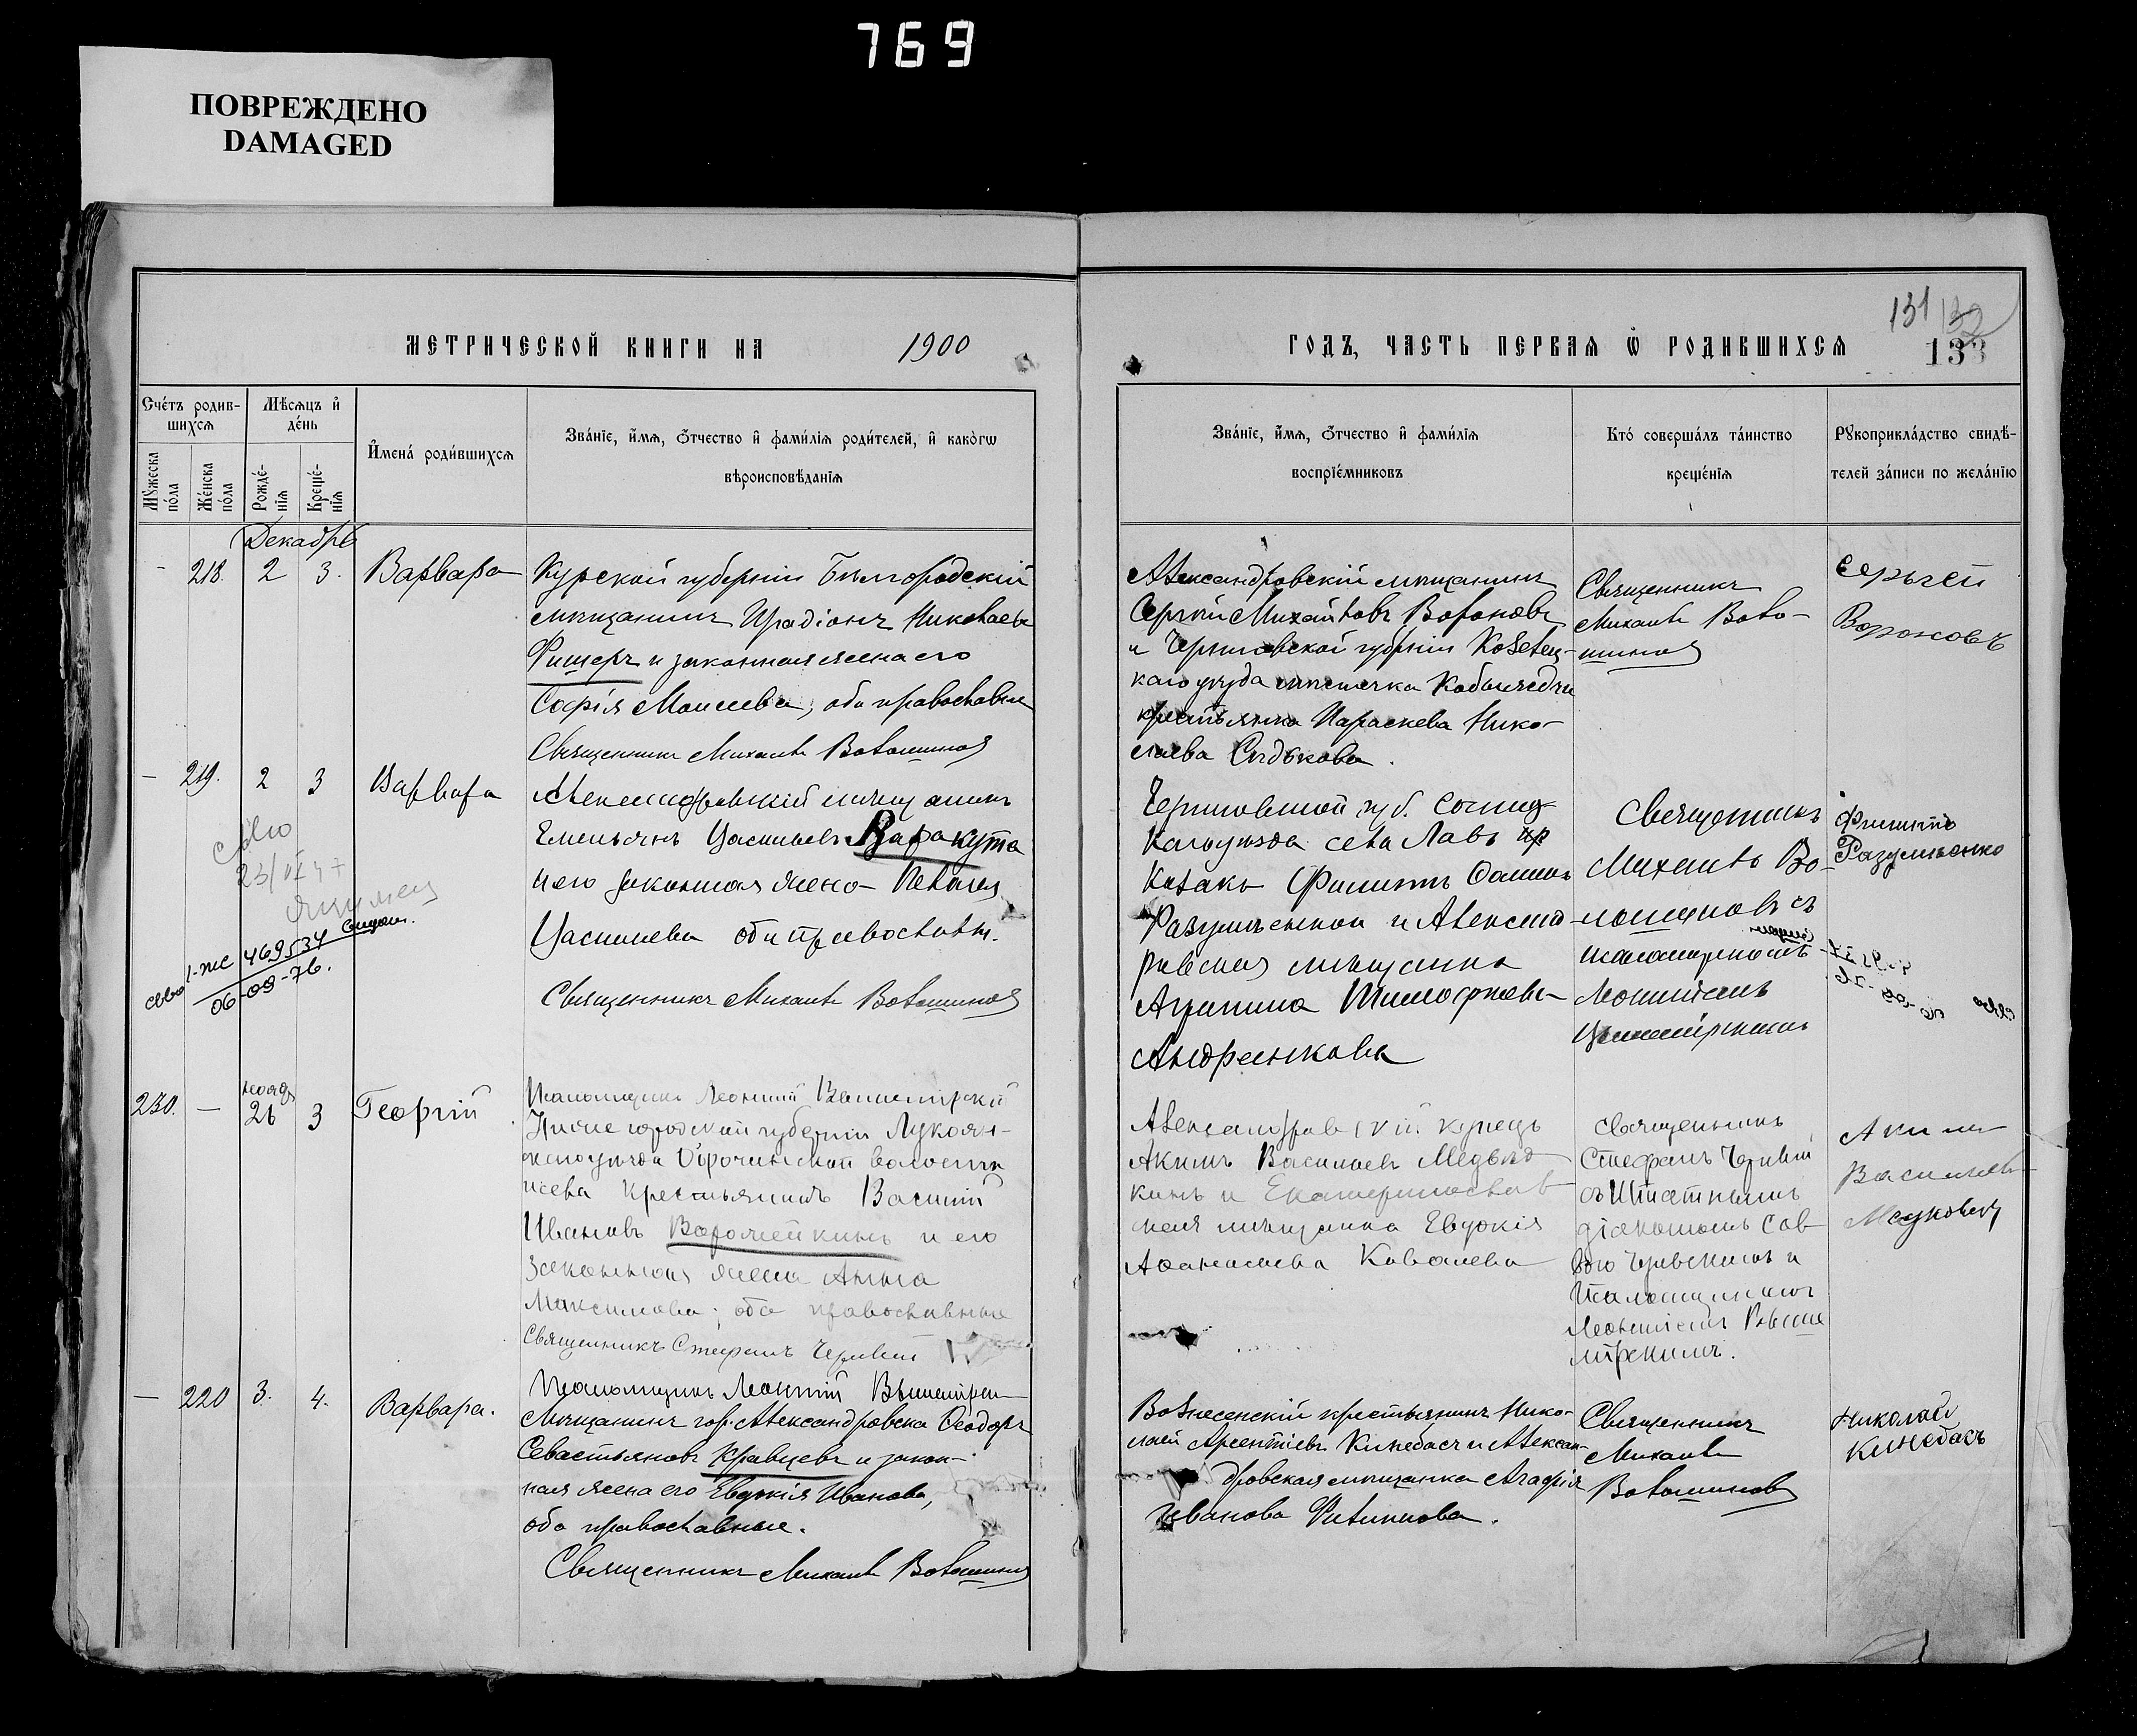 769
ПОВРЕЖДЕНО
DAMAGED
МЕТРИЧЕСКОЙ КНИГИ НА 1900
ГОДЪ, ЧАСТЬ ПЕРВАЯ Ѡ РОДИВШИХСЯ
131 132
133
Счетъ родив-
шихся
Мѣсяцъ и
день
Имена родившихся
Званіе, имя, отчество и фамилія родителей, и какогѡ
вѣроисповѣданія
Мужеска
пола
Женска
пола
Рожде-
нія
Креще-
нія
Званіе, имя, отчество и фамилія
воспріемниковъ
Кто совершалъ таинство
крещенія
Рукоприкладство свидѣ-
телей записи по желанію
Декабрь
- 218. 2 3. Варвара
Курской губерніи Бѣлгородскій
мѣщанинъ Иродіонъ Николаевъ
Фишеръ и законная жена его
Софія Моисеева, оба православные
Священникъ Михаилъ Волошиновъ
Александровскій мѣщанинъ
Сергѣй Михайловъ Вороновъ
и Черниговской губерніи Козелец-
каго уѣзда мѣстечка
крестьянка Параскева Нико-
лаева
Священникъ
Михаилъ Воло-
шиновъ
Сергѣй
Вороновъ
- 219. 2 3 Варвара
Александровскій мѣщанинъ
Емельянъ Васильевъ Варакута
и его законная жена Пелагея
Васильева оба православн.
Священникъ Михаилъ Волошиновъ
469534
06-09-76.
Черниговской губ. Сосниц-
каго уѣзда села
Казакъ Филиппъ
Разумѣенко и Александ-
ровская мѣщанка
Агрипина Тимофѣева
Андреенкова
Священникъ
Михаилъ Во-
лошиновъ съ
псаломщикомъ
Леонтіемъ
Филиппъ
Разумѣенко
230. - Ноябр
26 3 Георгій
Псаломщикъ Леонтій
Нижегородской губерніи Лукоян-
скаго уѣзда волости
крестьянинъ Василій
Ивановъ Ворожейкинъ и его
законная жена Анна
Максимова; оба православные
Священникъ Стефанъ
Александровскій купецъ
Акимъ Васильевъ
и Екатеринослав-
ская мѣщанка Евдокія
Аѳанасьева Ковалева
Священникъ
Стефанъ
съ штатнымъ
діакономъ Сав-
вою и
псаломщикомъ
Леонтіемъ
Акимъ
Васильевъ
- 220 3. 4. Варвара.
Псаломщикъ Леонтій
Мѣщанинъ гор. Александровска Ѳеодоръ
Севастьяновъ Кравцевъ и закон-
ная жена его Евдокія Иванова,
оба православные.
Священникъ Михаилъ Волошиновъ
Вознесенскій крестьянинъ Нико-
лай Арсентіевъ Кинебасъ и Алексан-
дровская мѣщанка Агафія
Иванова Филиппова.
Священникъ
Михаилъ
Волошиновъ
Николай
Кинебасъ